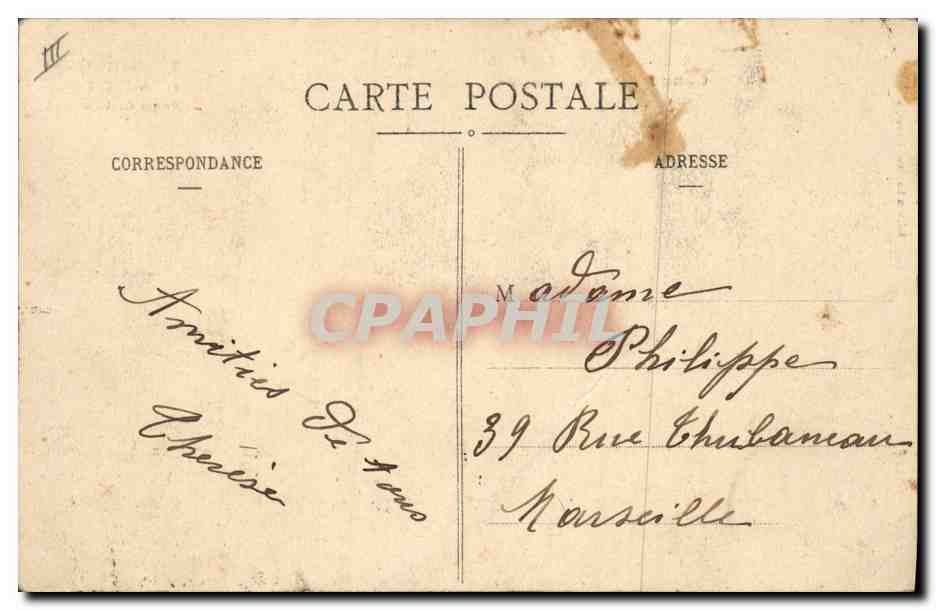 III
CARTE POSTALE
CORRESPONDANCE
ADRESSE
Amitiés de tous
Thérèse
Madame
Philippe
39 Rue Thubaneau
Marseille
CPAPHIL